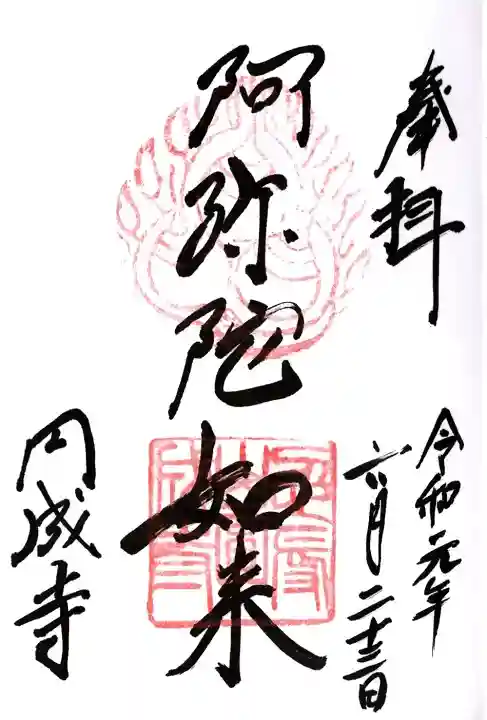 奉拝
令和元年
六月二十三日
阿弥陀如来
円成寺